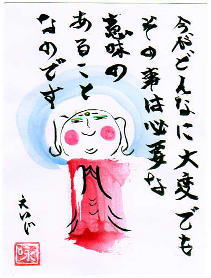 今がどんなに大変でも
その事は必要な
意味の
あること
なのです
えいじ